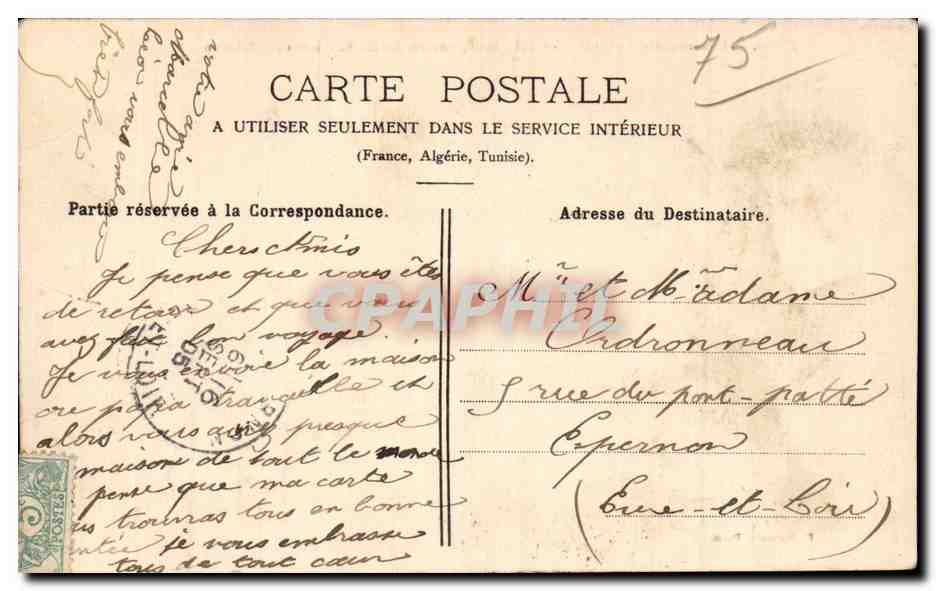 75
CARTE POSTALE
A UTILISER SEULEMENT DANS LE SERVICE INTÉRIEUR
(France, Algérie, Tunisie).
Partie réservée à la Correspondance.
Chers Amis
Je pense que vous êtes
de retour et que vous
avez fait bon voyage.
Je vous envoie la maison
ore papa travaille et
alors vous avez presque
maison de tout le monde
pense que ma carte
us trouvras tous en bonne
ntée je vous embrasse
tous de tout cœur
votre amie
Marcelle
vous em
bien forts
Adresse du Destinataire.
Mr et Madame
Ordronneau
5 rue du port-patté
Epernon
(Eure-et-Loir)
CPAPHIL
16
SEPT
05
ET-LOIR
5
POSTES